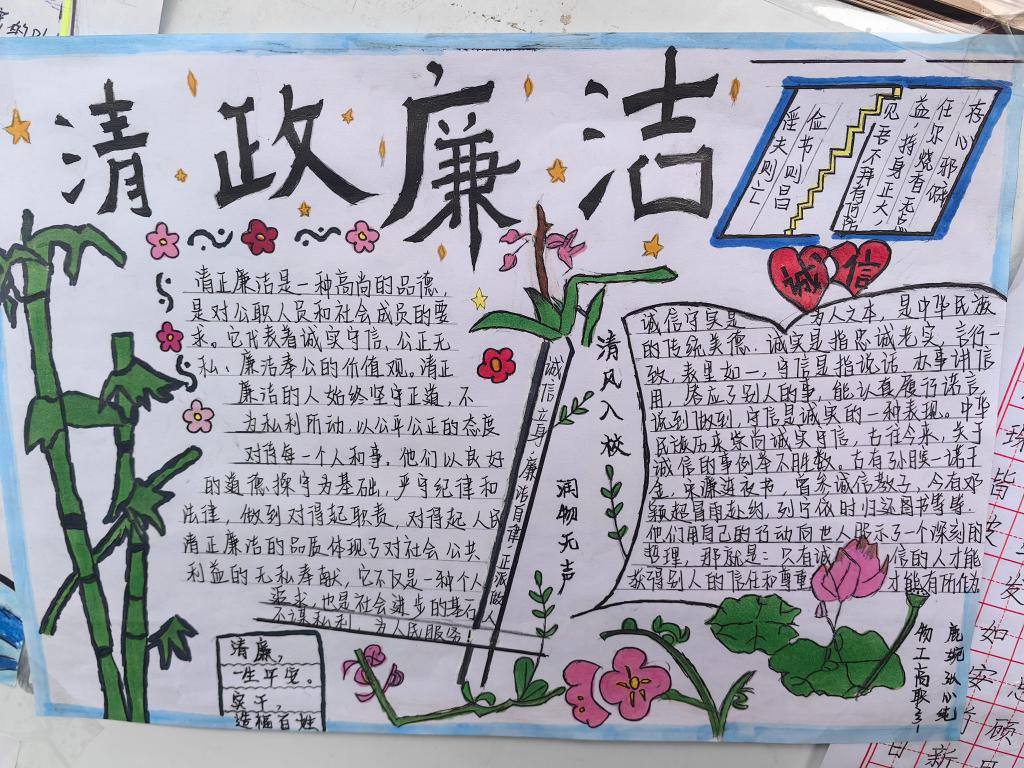 清政廉洁
存心
任尔邪
益,
烧香无点
见吾不拜有何
身正大
俭书则昌
淫夫则亡
诚信
清正廉洁是一种高尚的品德,
是对公职人员和社会成员的要
求。它代表着诚实守信、公正无
私、廉洁奉公的价值观。清正
廉洁的人始终坚守正道,不
为私利所动,以公平公正的态度
对待每一个人和事。他们以良好
的道德操守为基础,严守纪律和
法律,做到对得起职责,对得起人民
清正廉洁的品质体现了对社会公共
利益的无私奉献,它不仅是一种个人
要求,也是社会进步的基石
不谋私利 为人民服务
诚信立身 廉洁自律,正派做
清风入校
润物无声
诚信守实是 为人之本,是中华民族
的传统美德.诚实是指忠诚老实,言行一
致,表里如一,守信是指说话、办事讲信
用,答应了别人的事,能认真履行诺言,
说到做到,守信是诚实的一种表现。中华
民族历来崇尚诚实守信,古往今来,关于
诚信的事例举不胜数。古有 一诺千
金,宋濂连夜书,曾参诚信教子,今有邓
颖超冒雨赴约,列宁依时归还图书等等.
他们用自己的行动向世人昭示了一个深刻的
哲理,那就是:只有诚 信的人才能
获得别人的信任和尊重 才能有所作为
清廉,
一生平安。
实干,
造福百姓
物工高职